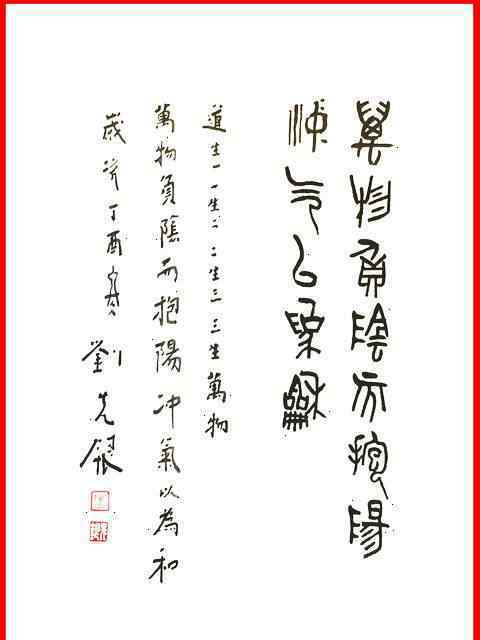 萬物負陰而抱陽
沖气以為龢
道生一一生二二生三三生萬物
萬物負陰而抱陽冲氣以為和
歲於丁酉寒冬劉先銀